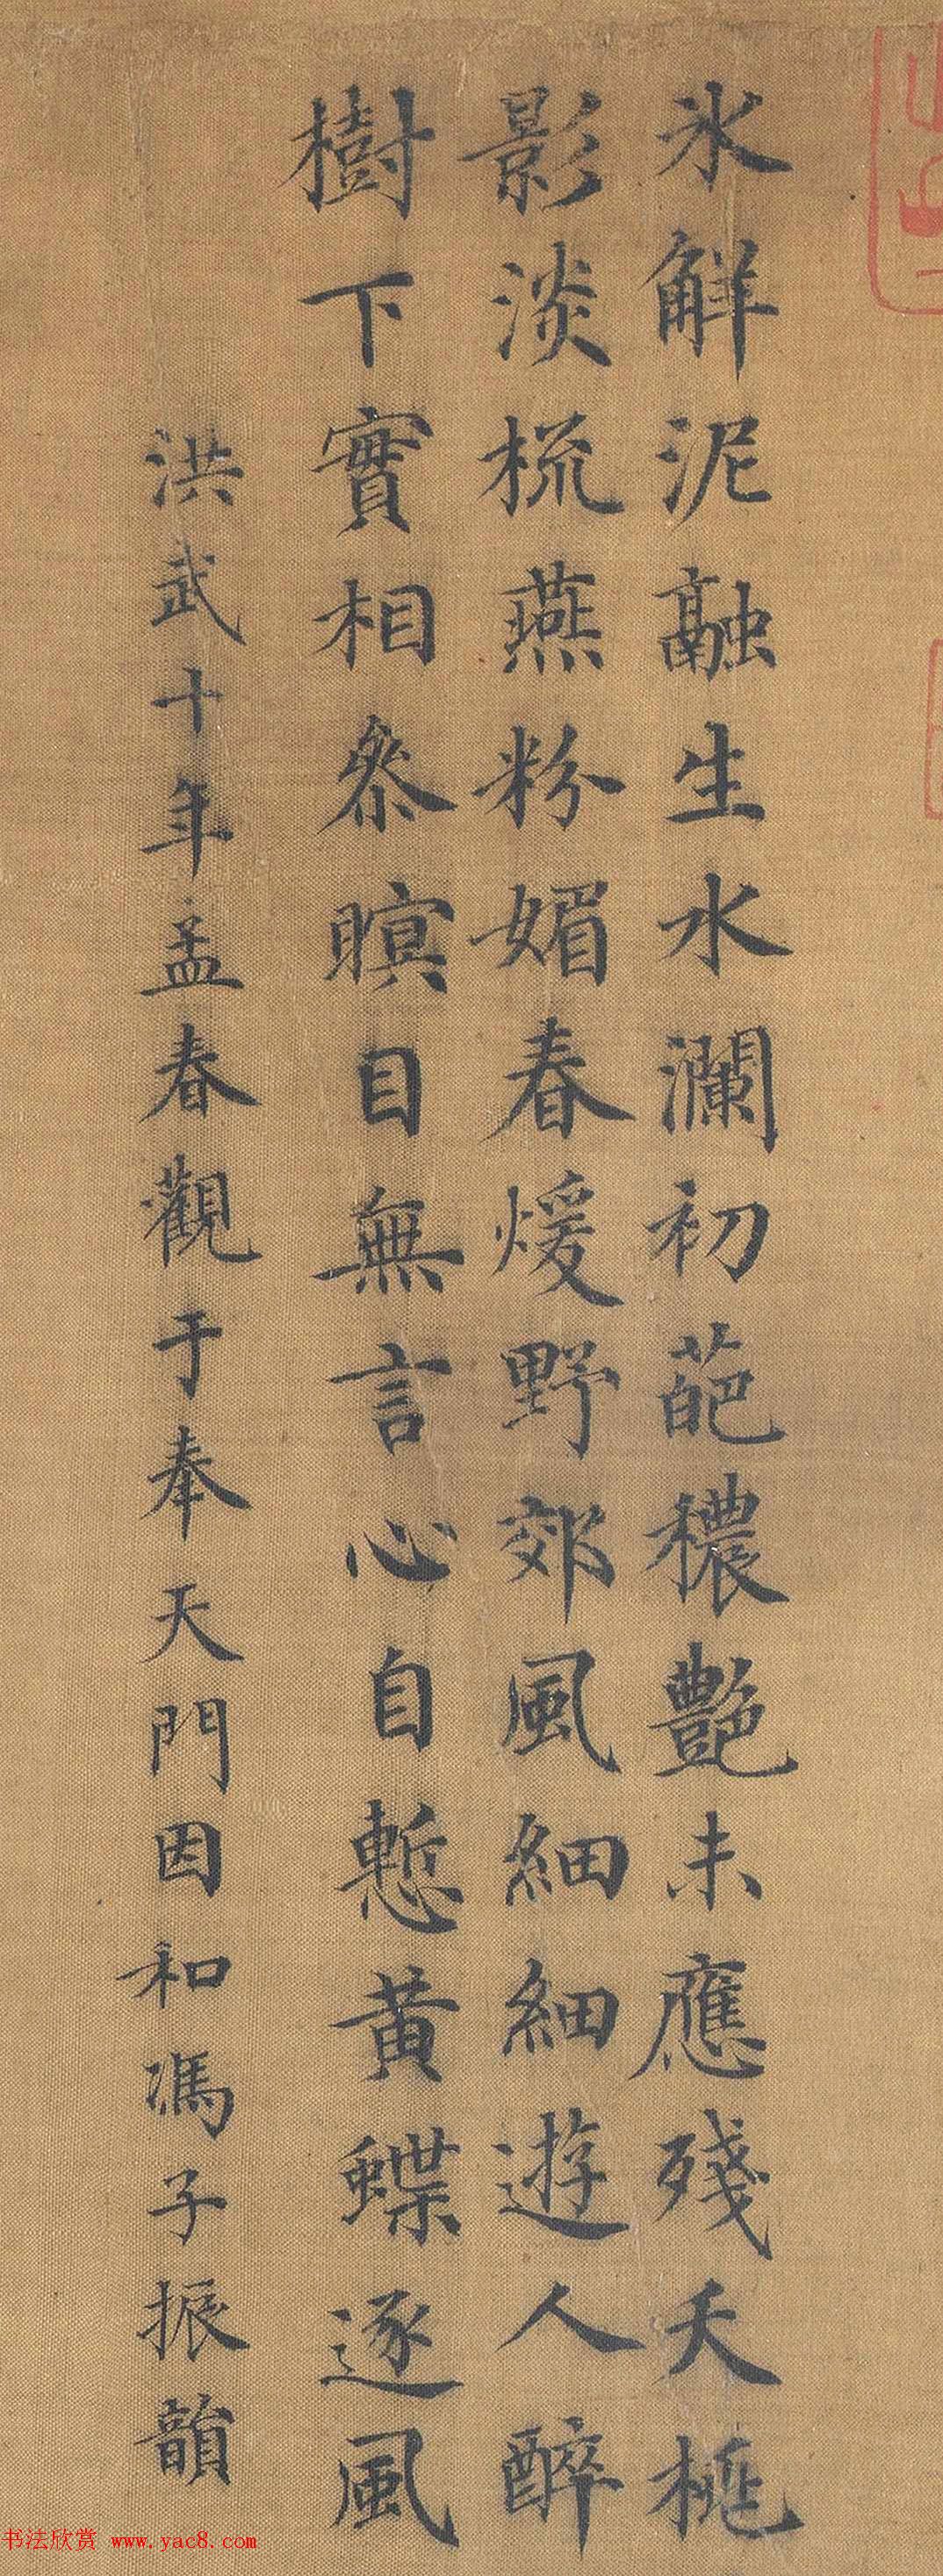 氷解泥融生水瀾初葩穠艷未應殘夭桃
影淡梳燕粉媚春煖野郊風細細遊人醉
樹下實相叅瞑目無言心自慙黃蝶逐風
洪武十年孟春觀于奉天門因和馮子振韻
书法欣赏 www.yac8.com